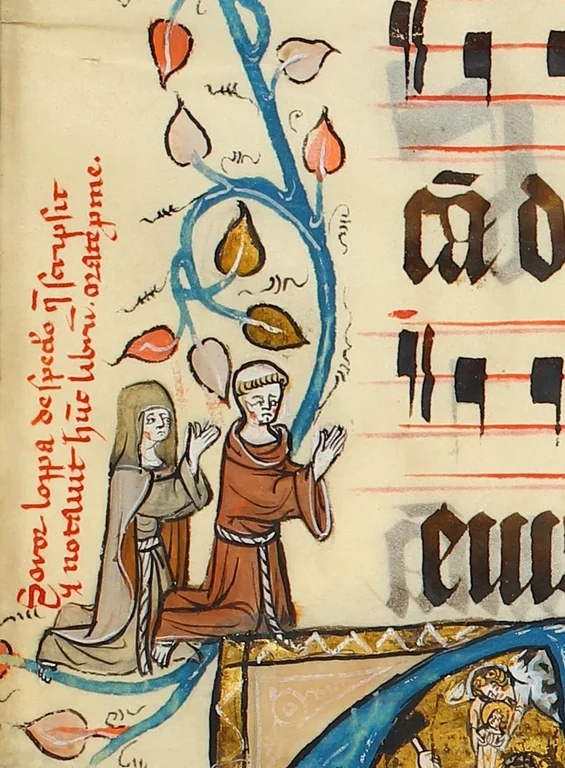 Soror loppa de specl'o q̄ scripsit
⁊ notauit hūc librū. orate p me.
cā d
eius